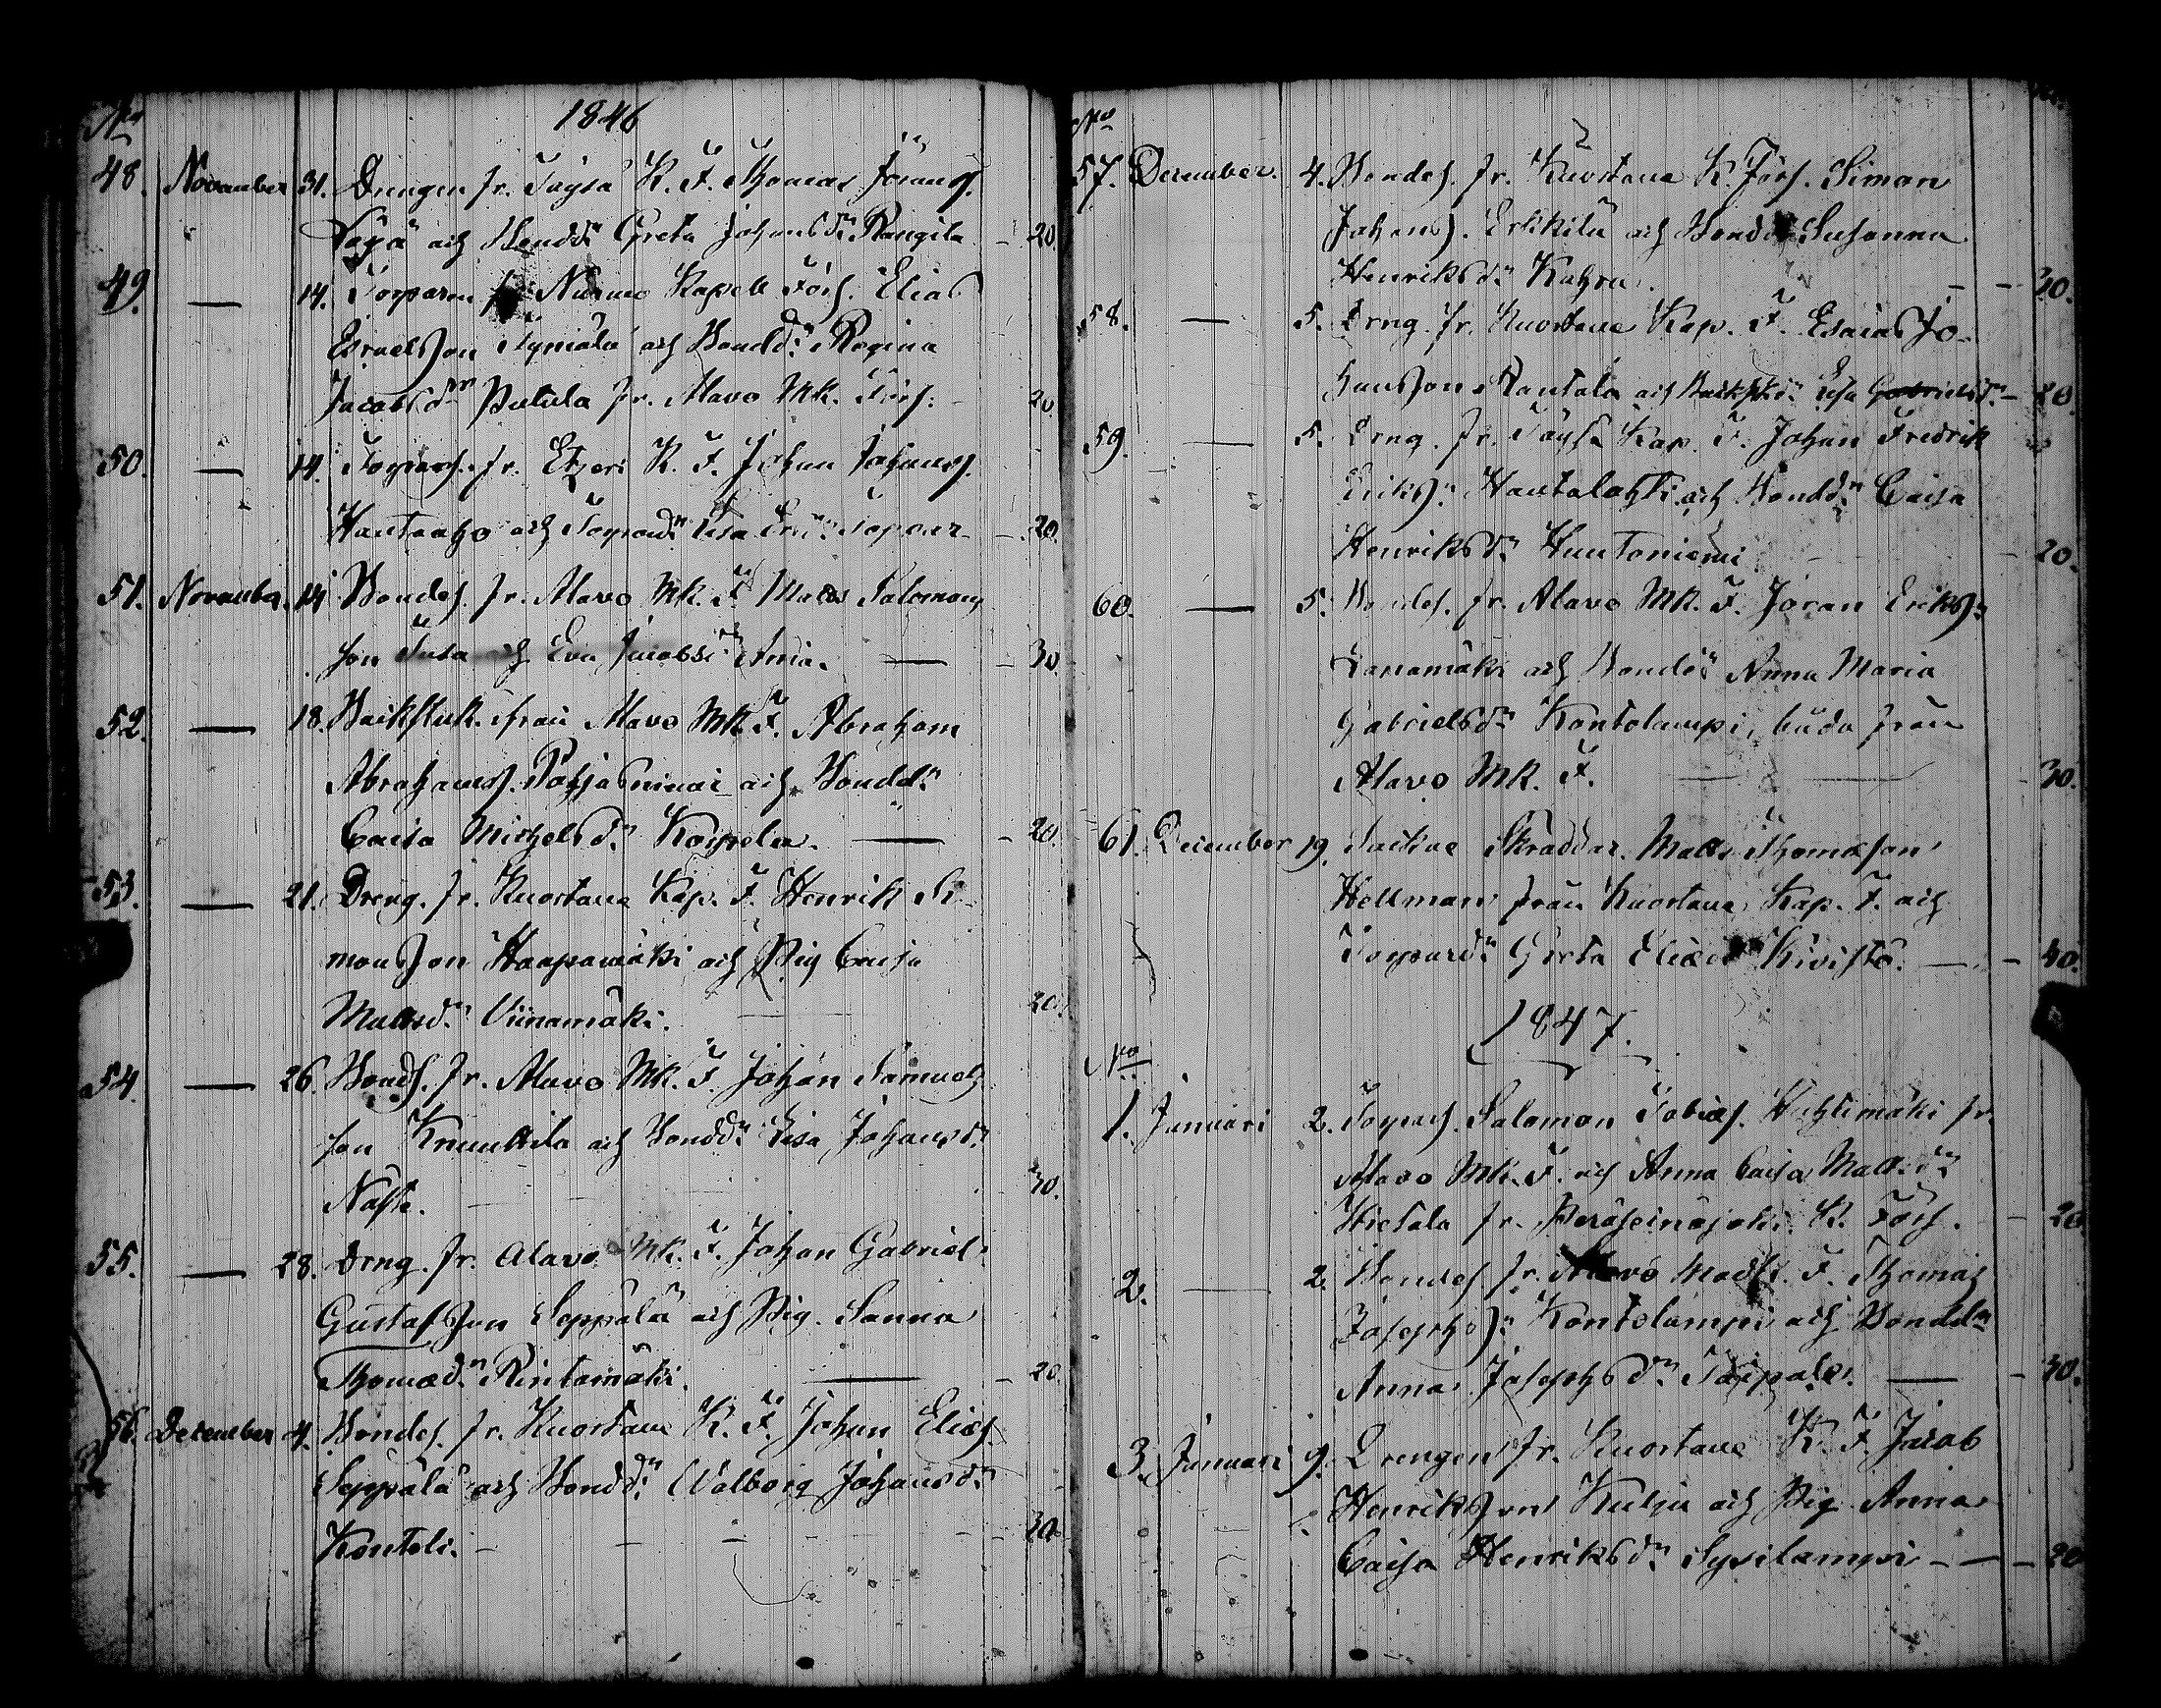 No 1846
48. November 31. Drengen fr. Töysä K. F. Thomas Göransf.
och Bondd:n Greta Johansd:n Rangila – 20.
49. — 14. Torparen fr. Nurmo Kapell Förs. Elias
Esraelsson och Bondd:n Regina
Jacobsd:n Putula fr. Alavo Mk. Förs: – 20
50. — 14. Torpars. fr. Etseri K. F. Johan Johansf.
Hautaaho och Torpared:n Lisa – 20.
51. November 14 Bondes. fr. Alavo Mk. F. Matts Salomons
son Tusa och Eva Jacobsd:n — – 30.
52. — 18. Backstuk. från Alavo Mk. F. Abraham
Abrahamsf. och Bondd:n
Caisa Michelsd:n Koipela. — – 20.
53. — 21. Dreng. fr. Kuortane Kap. F. Henrik Si-
monsson Haapamäki och Pig Caisa
Mattsd:n Viinamäki. 20.
54. — 26. Bonds. fr. Alavo Mk. F. Johan Samuels
son Knuuttila och Bondd:n Lisa Johansd:n
Näste. – 30.
55. — 28. Drng. fr. Alavo Mk. F. Johan Gabriel
Gustafsson Seppälä och Pig. Sanna
Thomæd:n Rintamäki. — – 20.
56. December 4. Bondes. fr. Kuortane K. F. Johan Eliæf.
Seppälä och Bondd:n Valborg Johansd:n
Kontoli. – – – – – 30.
No
57. December. 4. Bondes. fr. Kuortane K. Förs. Simon
Johans). Erkkilä och Bondd:n Susanna
Henriksd:n Kahra. – – 30.
58. — 5. Drng. fr. Kuortane Kap. F. Esaias Jo-
hansson Rantala och Backstd:n Lisa Gabrielsd:n – 20.
59. — 5. Drng. fr. Töysä Kap. F. Johan Fredrik
Eriks):n Hautalahti och Bondd:n Caisa
Henriksd:n Huutoniemi – 20.
60. — 5. Bondes. fr. Alavo Mk. F. Jöran Eriks):n
och Bondd:n Anna Maria
Gabrielsd:n Kontolampi, båda från
Alavo Mk. F. — — – 30.
61. December 19. Sockne Skräddar. Matts Thomæson
Hellman från Kuortane Kap. F. och
Torpared:n Greta Eliæd:n Kivistö. — – 40.
1847.
No
1. Januari 2. Torpars. Salomon Tobiæf. Kuhtimäki fr.
Alavo Mk. F. och Anna Caisa Mattsd:n
Hietala fr. Peräseinäjoki K. Förs. – 20
2. — 2. Bondes fr. Alavo Modf. F. Thomas
Josephs):n Kontolampi och Bondd:n
Anna Josephsd:n Taipale. — – 30.
3. Januari 9. Drengen fr. Kuortane K. F. Jacob
Henriksson Kulju och Pig Anna
Caisa Henriksd:n Sysilampi – — – 20